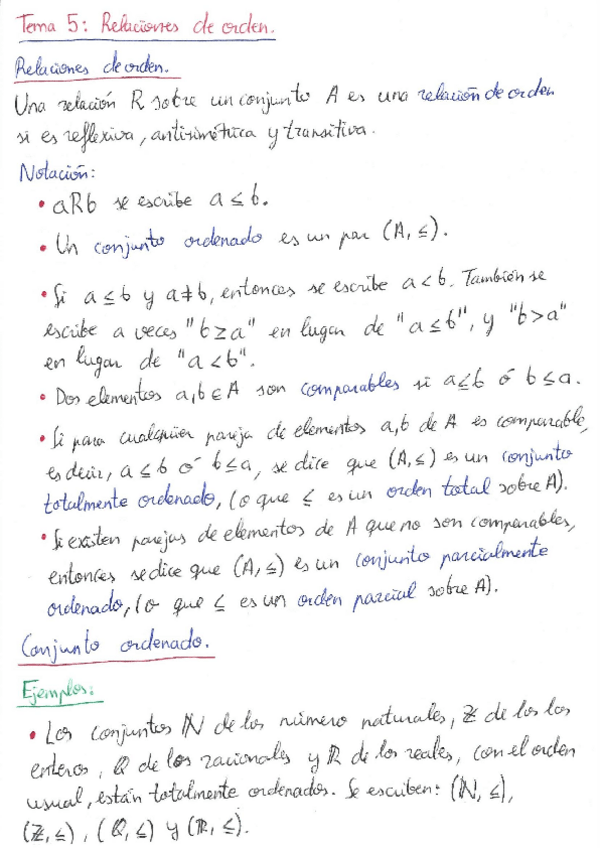 Tema 5: Relaciones de orden.
Relaciones de orden.
Una relación R sobre un conjunto A es una relación de orden
si es reflexiva, antisimétrica y transitiva.
Notación:
• aRb se escribe a ≤ b.
• Un conjunto ordenado es un par (A, ≤).
• Si a ≤ b y a ≠ b, entonces se escribe a < b. También se
escribe a veces "b ≥ a" en lugar de "a ≤ b", y "b > a"
en lugar de "a < b".
• Dos elementos a, b ∈ A son comparables si a ≤ b ó b ≤ a.
• Si para cualquier pareja de elementos a, b de A es comparable,
es decir, a ≤ b ó b ≤ a, se dice que (A, ≤) es un conjunto
totalmente ordenado, (o que ≤ es un orden total sobre A).
• Si existen parejas de elementos de A que no son comparables,
entonces se dice que (A, ≤) es un conjunto parcialmente
ordenado, (o que ≤ es un orden parcial sobre A).
Conjunto ordenado.
Ejemplos:
• Los conjuntos ℕ de los número naturales, ℤ de los los
enteros, ℚ de los racionales y ℝ de los reales, con el orden
usual, están totalmente ordenados. Se escriben: (ℕ, ≤),
(ℤ, ≤), (ℚ, ≤) y (ℝ, ≤).